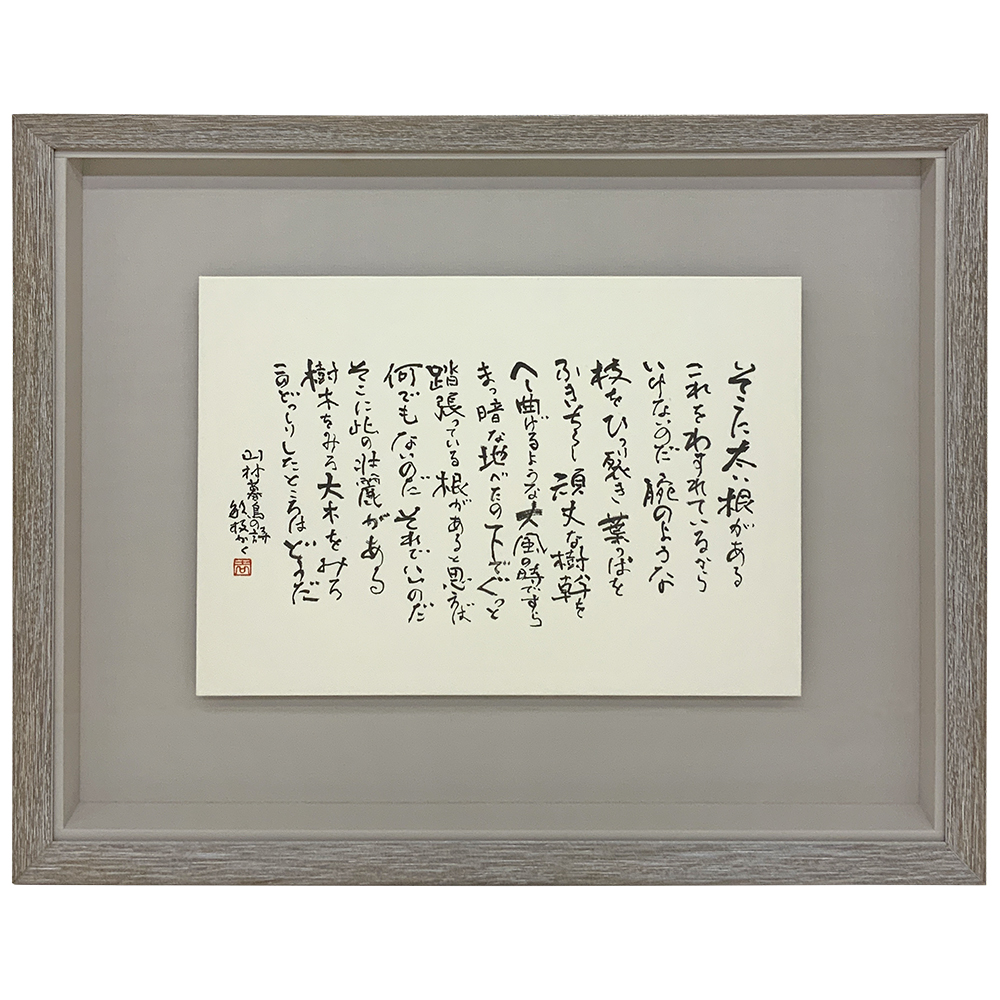 そこに太い根がある
これをわすれているから
いけないのだ 腕のような
枝をひつ裂き 葉つぱを
ふきちらし 頑丈な樹幹を
へし曲げるような大風の時ですら
まつ暗な地べたの下でぐつと
踏張つている根があると思えば
何でもないのだ それでいいのだ
そこに此の壮麗がある
樹木をみろ 大木をみろ
このどつしりしたところはどうだ
山村暮鳥の詩
敏枝かく